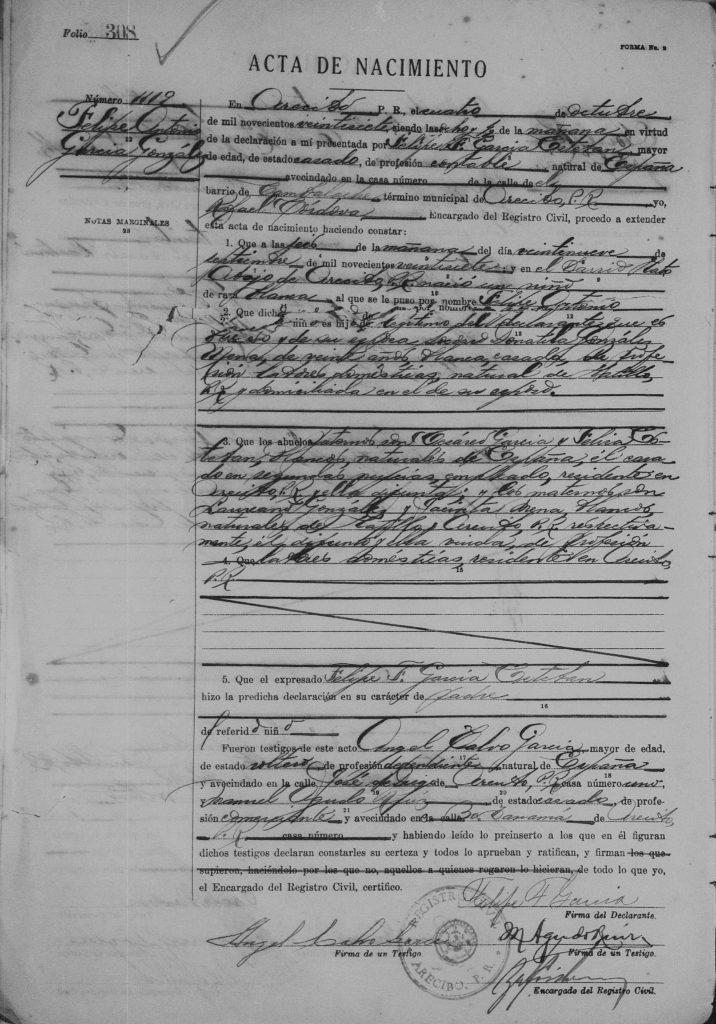 Folio 308
FORMA No. 2
ACTA DE NACIMIENTO
Número 1112
Felipe Antonio
García González
NOTAS MARGINALES
23
En Arecibo P. R., el cuatro de octubre
de mil novecientos veintisiete, siendo las ocho y de la mañana, en virtud
de la declaración a mí presentada por Felipe F. García Esteban, mayor
de edad, de estado casado, de profesión contable natural de España
avecindado en la casa número de la calle de
barrio de Cambalache término municipal de Arecibo, P.R. yo,
Rafael Córdova, Encargado del Registro Civil, procedo a extender
esta acta de nacimiento haciendo constar:
1. Que a las seis de la mañana del día veintinueve de
septiembre de mil novecientos veintisiete; y en el Barrio Hato
Abajo de Arecibo, P.R. nació un niño
de raza blanca al que se le puso por nombre Felipe Antonio
2. Que dicho niño es hijo legítimo del declarante que es
y de su esposa Donatila González
Mena, de veinte años, blanca, casada, de profe-
sión labores domésticas, natural de Hatillo,
P.R. y domiciliada en el de su esposo.
3. Que los abuelos paternos son García y Felisa Es-
teban, blancos, naturales de España, él casa-
do en segundas nupcias, empleado, residente en
Arecibo, P.R. y ella difunta; y los maternos son
Laureano González y Jacinta Mena, blancos,
naturales de Hatillo y Arecibo, P.R. respectiva-
mente, él difunto y ella viuda, de profesión
4. Que labores domésticas, residente en Arecibo,
P.R.
5. Que el expresado Felipe F. García Esteban
hizo la predicha declaración en su carácter de padre
del referido niño
Fueron testigos de este acto Angel Calvo García, mayor de edad,
de estado soltero de profesión dependiente natural de España
y avecindado en la calle José de Diego de Arecibo, P.R. casa número uno,
Manuel Agudo Ruiz de estado casado, de profe-
sión comerciante y avecindado en la calle Bo. Panamá de Arecibo
P.R. casa número y habiendo leído lo preinserto a los que en él figuran
dichos testigos declaran constarles su certeza y todos lo aprueban y ratifican, y firman los que
supieron, haciéndolo por los que no, aquellos a quienes rogaron lo hicieran, de todo lo que yo,
el Encargado del Registro Civil, certifico.
Felipe F. García
Firma del Declarante.
Angel Calvo García
Firma de un Testigo.
M Agudo Ruiz
Firma de un Testigo.
REGISTRO CIVIL
ARECIBO, P. R.
Encargado del Registro Civil.